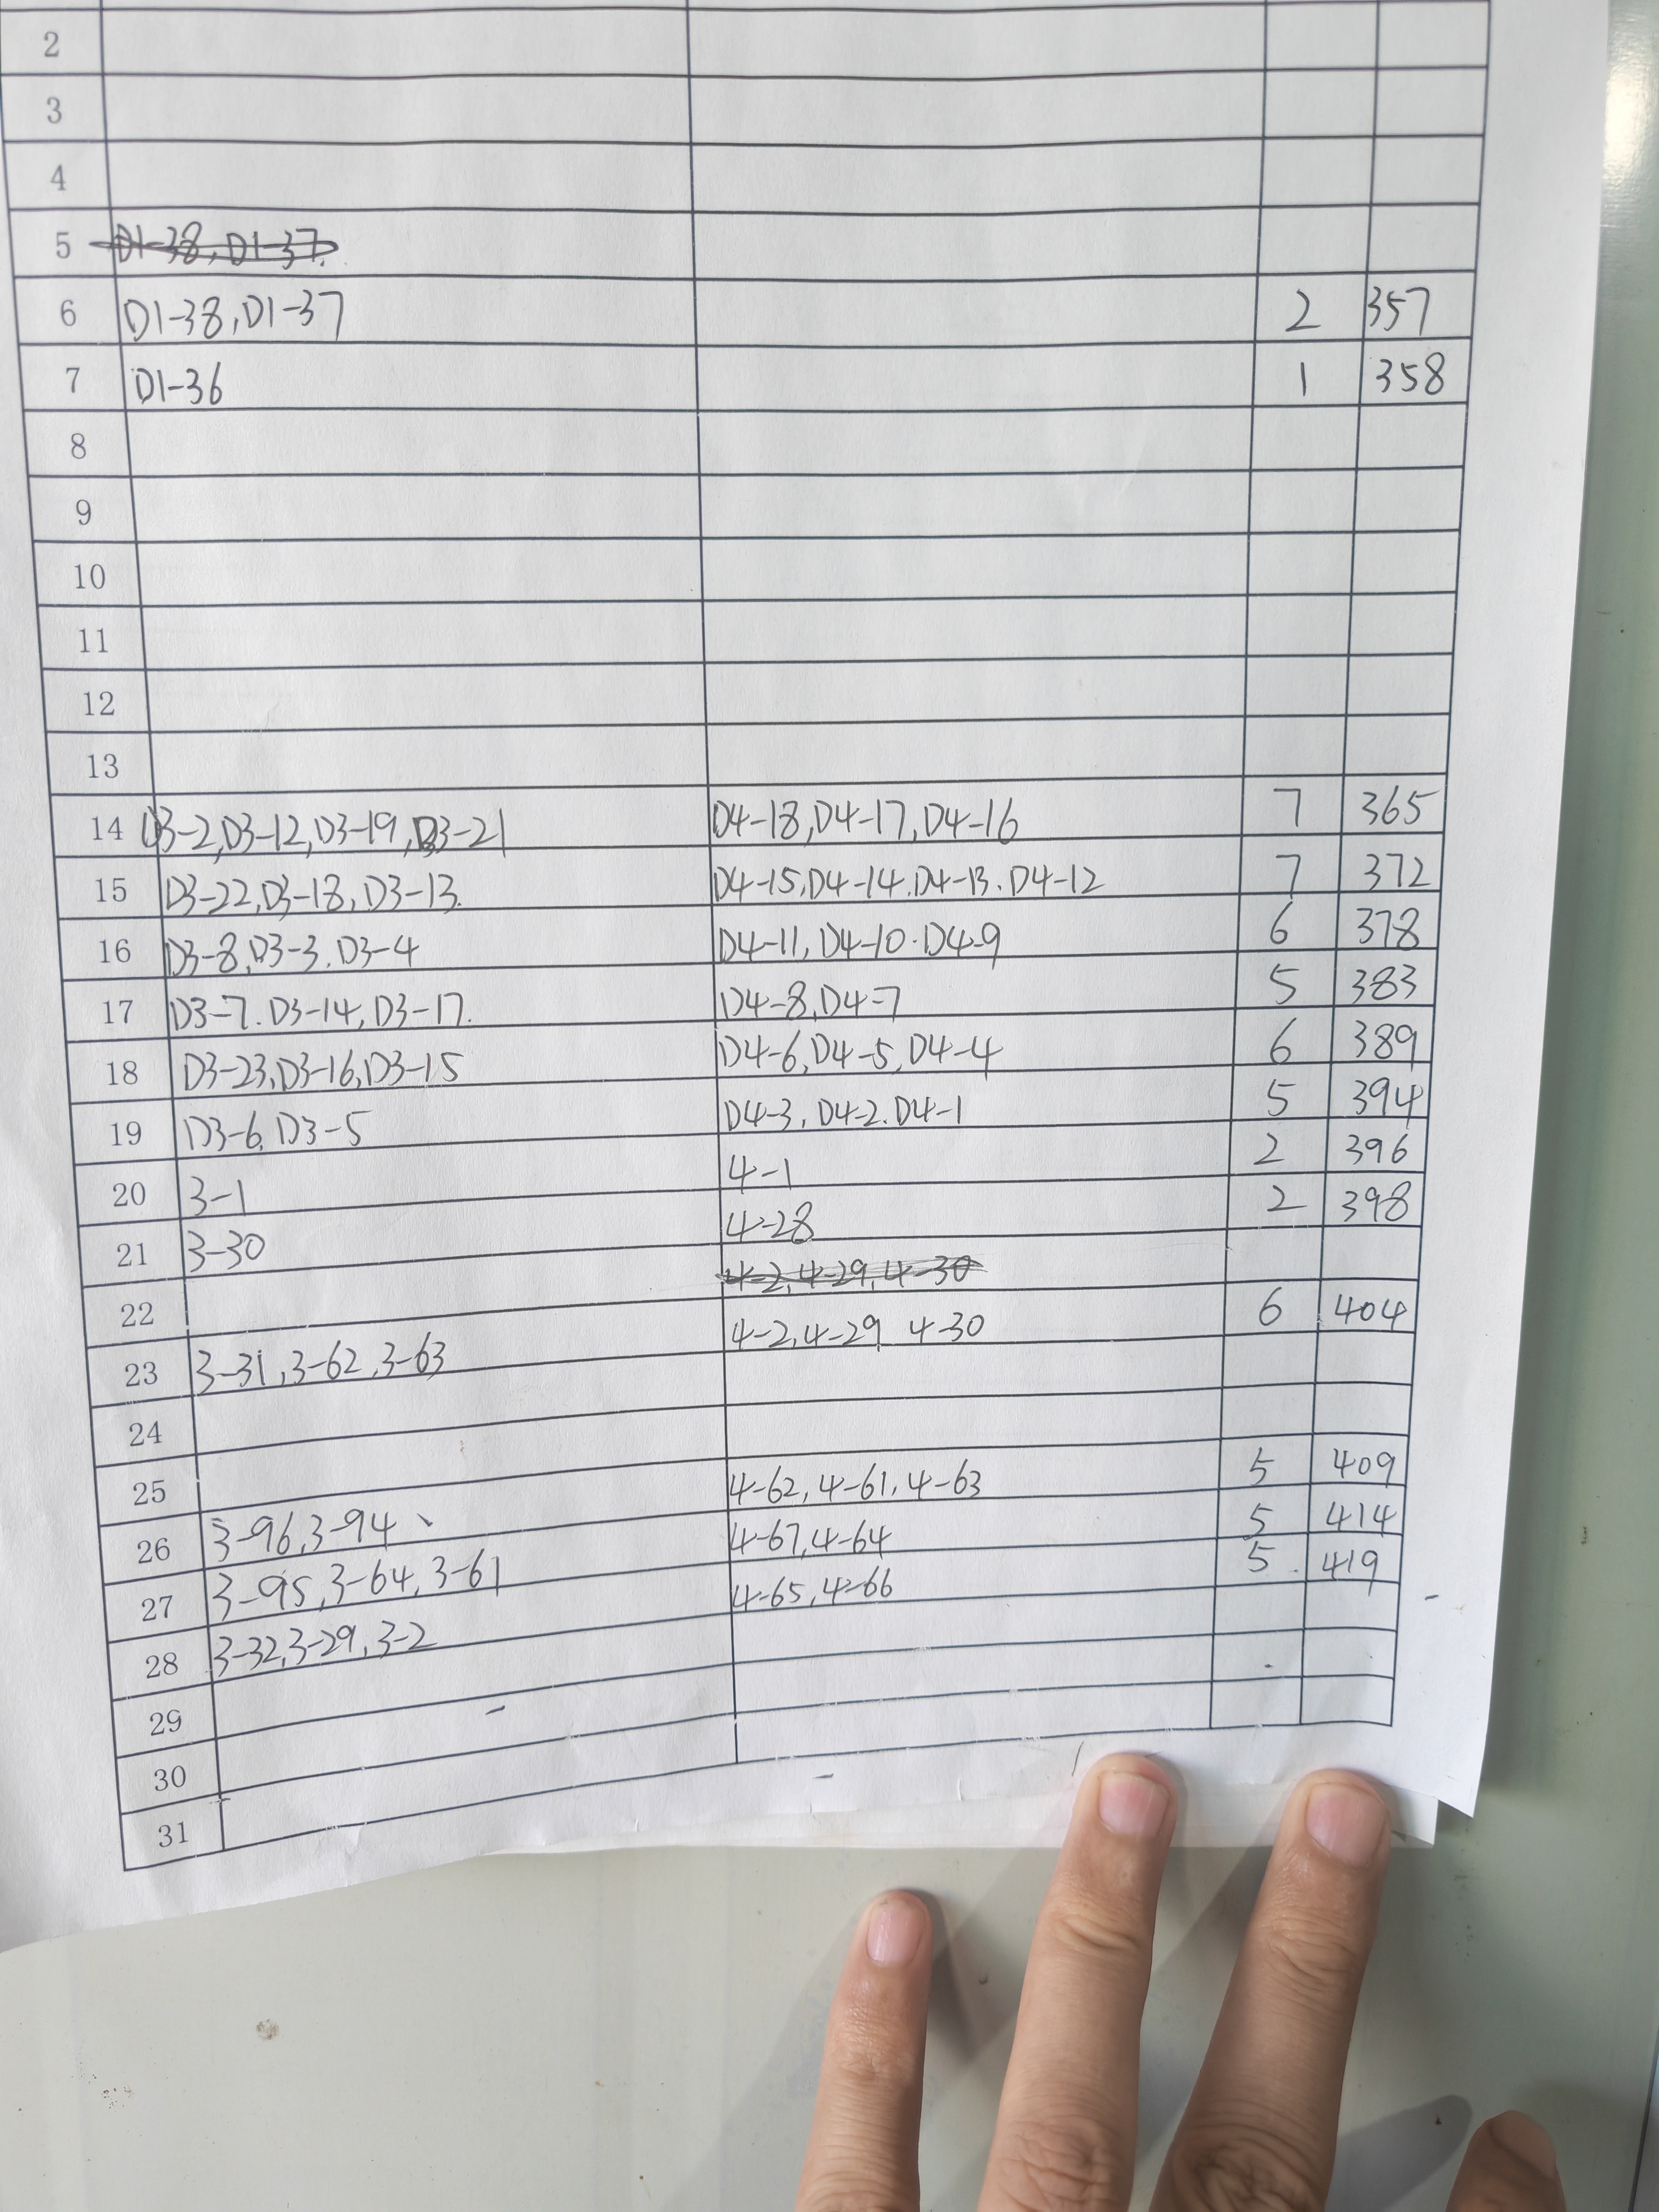 2
3
4
5 D1-38, D1-37.
6 D1-38, D1-37 2 357
7 D1-36 1 358
8
9
10
11
12
13
14 D3-2, D3-12, D3-19, D3-21 D4-18, D4-17, D4-16 7 365
15 D3-22, D3-18, D3-13. D4-15, D4-14. D4-13. D4-12 7 372
16 D3-8, D3-3. D3-4 D4-11, D4-10. D4-9 6 378
17 D3-7. D3-14, D3-17. D4-8, D4-7 5 383
18 D3-23, D3-16, D3-15 D4-6, D4-5, D4-4 6 389
19 D3-6, D3-5 D4-3, D4-2. D4-1 5 394
20 3-1 4-1 2 396
21 3-30 4-28 2 398
22 4-2, 4-29, 4-30
23 3-31, 3-62, 3-63 4-2, 4-29 4-30 6 404
24
25
26 3-96, 3-94、 4-62, 4-61, 4-63 5 409
27 3-95, 3-64, 3-61 4-67, 4-64 5 414
28 3-32, 3-29, 3-2 4-65, 4-66 5 419
29
30
31